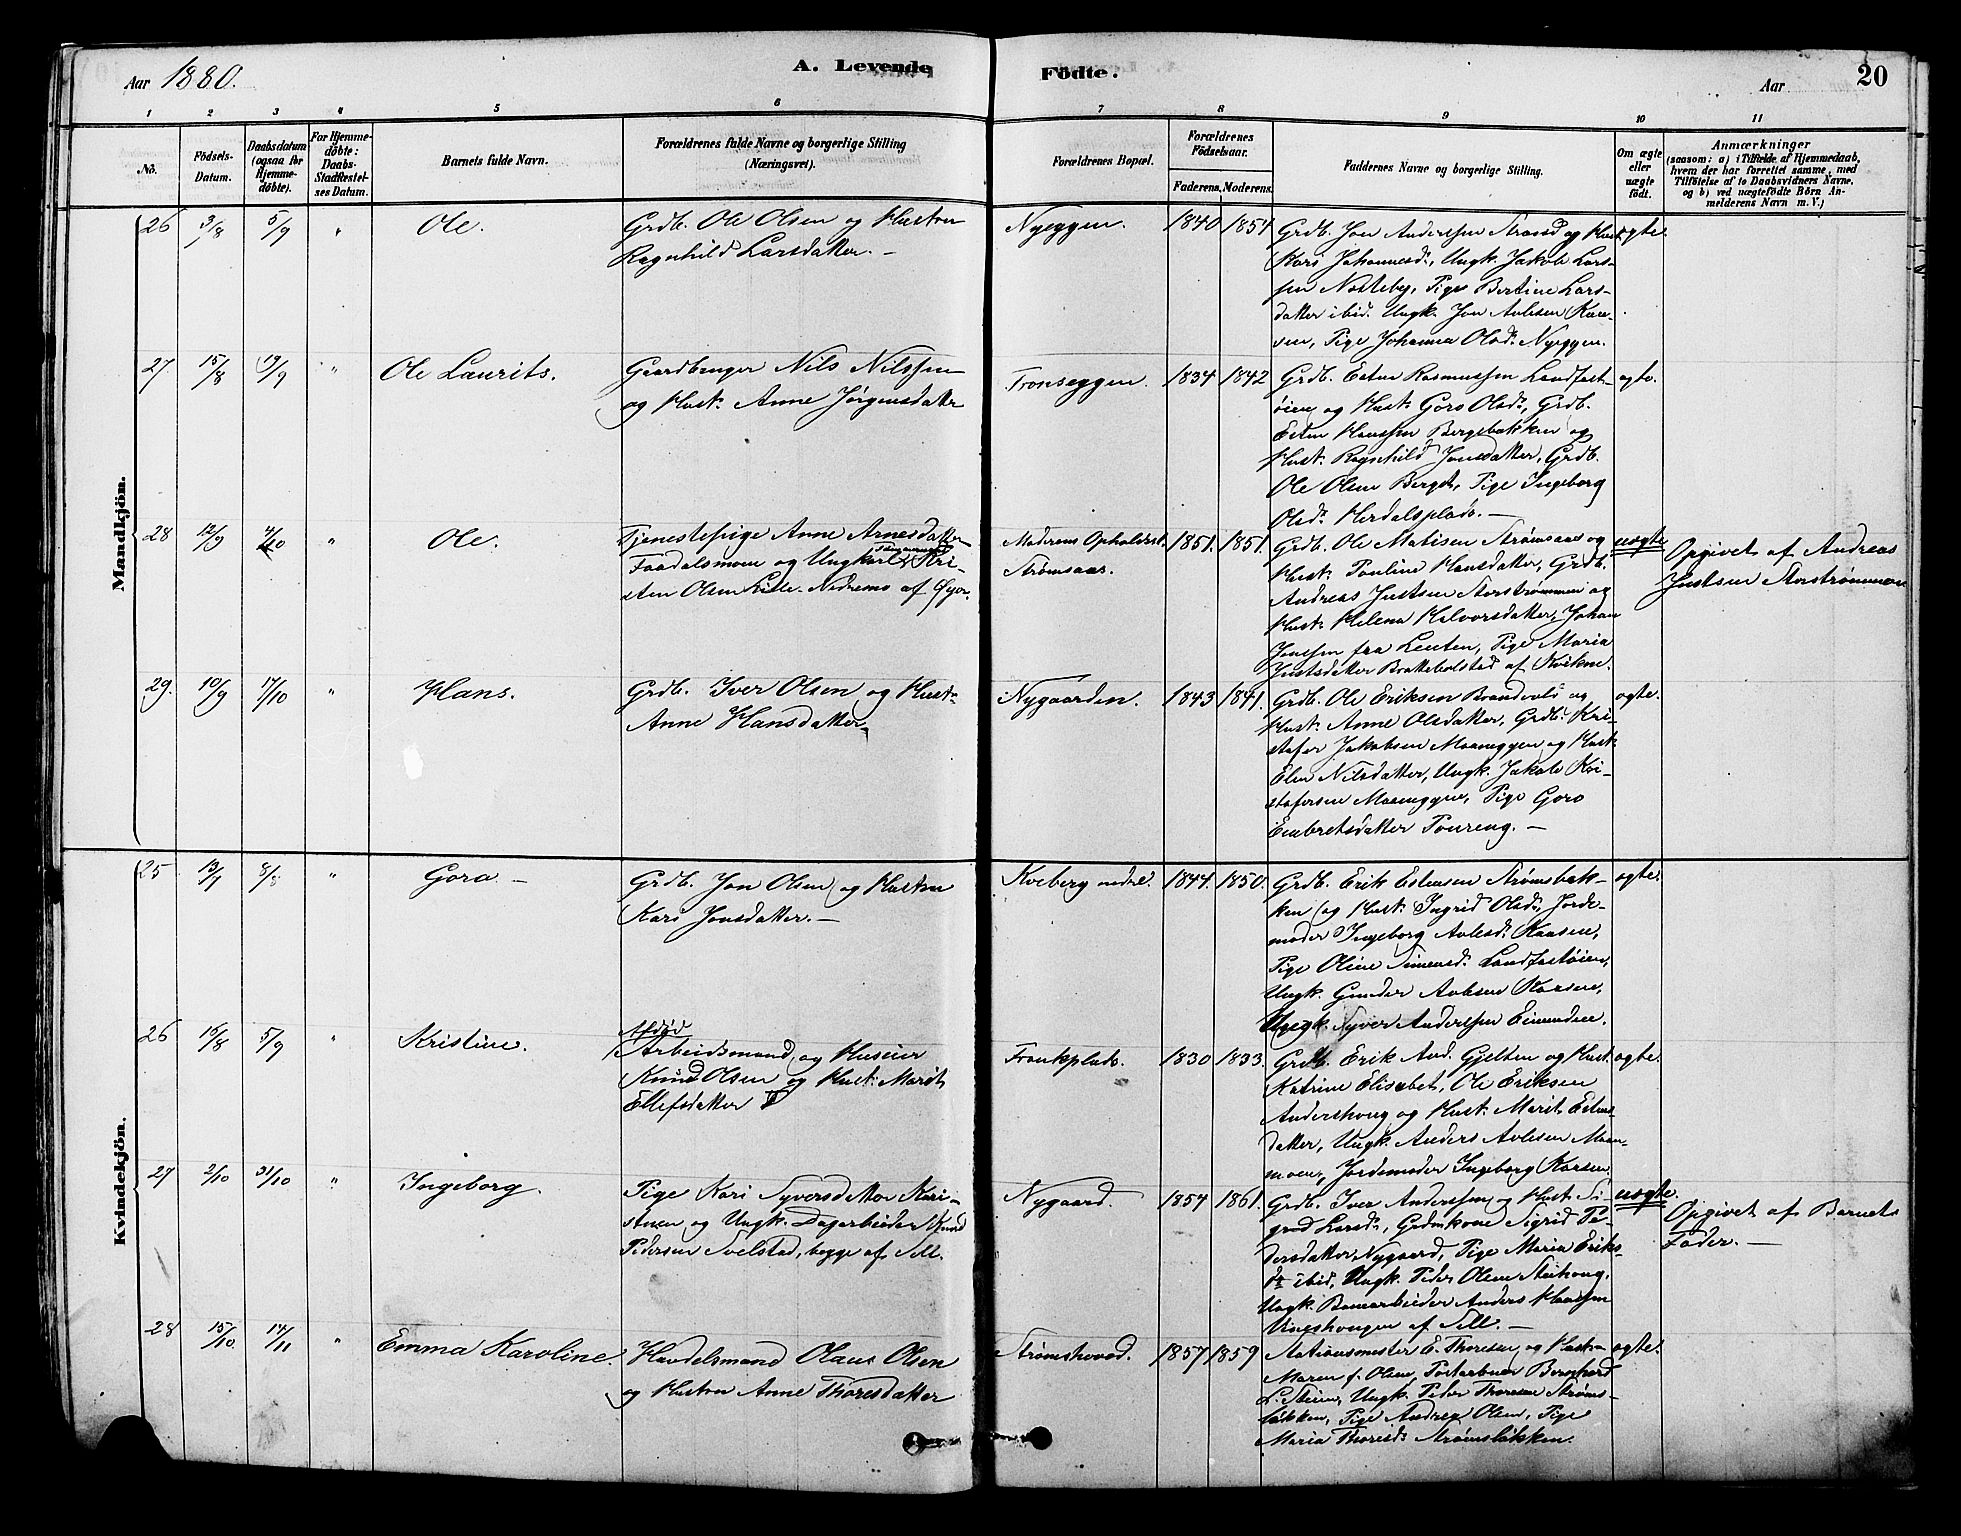 Aar 1880.
A. Levende
Födte.
Aar
20
1 2 3 4 5 6 7 8 9 10 11
No.
Födsels-
Datum.
Daabsdatum
(ogsaa for
Hjemme-
döbte).
For Hjemme-
döbte:
Daabs-
Stadfæstel-
ses Datum.
Barnets fulde Navn.
Forældrenes fulde Navne og borgerlige Stilling
(Næringsvei).
Forældrenes Bopæl.
Forældrenes
Födselsaar.
Faderens. Moderens.
Faddernes Navne og borgerlige Stilling.
Om ægte
eller
uægte
födt.
Anmærkninger
(saasom: a) i Tilfælde af Hjemmedaab,
hvem der har forrettet samme, med
Tilföielse af to Daabsvidners Navne,
og b) ved uægtefödte Börn An-
melderens Navn m. V.)
Mandkjön.
26 3/8 5/9 "
Ole.
Grdb. Ole Olsen og Hustru
Ragnhild Larsdatter. —
Nyeggen.
1840 1854
Grdb. Jon Anderssen Strand og Hust.
Kari Johannesd., Ungk. Jakob Lars-
sen Nosteby, Pige Bertine Lars-
datter ibid. Ungk. Jon Avlesen Kaa-
sen, Pige Johanna Olsd. Nyeggen.
ægte.
27 15/8 19/9 "
Ole Laurits.
Gaardbruger Nils Nilssen
og Hust. Anne Jørgensdatter
Tronseggen.
1834 1842
Grdb. Esten Rasmussen Landfast-
øien og Hust. Goro Olsd., Grdb.
Esten Hanssen Bergebakken og
Hust. Ragnhild Jonsdatter, Grdb.
Ole Olsen Berget, Pige Ingeborg
Olsd. Herdalsplads. —
ægte.
28 12/9 4/10 "
Ole.
Tjenestepige Anne Arnesdatter
Faadalsmoen og Ungkarl Kri-
sten Olsen Lille-Nedremo af Øyer.
Moderens Opholdsst.
Strømsaas.
1851. 1851.
Grdb. Ole Matisen Strømsaas og
Hust. Pauline Hansdatter, Grdb.
Andreas Justsen Storstrømmen og
Hust. Helena Halvorsdatter, Johan
Jonssen fra Leuten, Pige Maria
Justsdatter Brattebolstad af Kvikne.
uægte
Opgivet af Andreas
Justsen Storstrømmen
29. 10/9 17/10 "
Hans.
Grdb. Iver Olsen og Hust.
Anne Hansdatter.
Nygaarden.
1843 1841.
Grdb. Ole Eriksen Brandvold og
Hust. Anne Olsdatter, Grdb. Kri-
stofer Jakobsen Moaneggen og Hust.
Elen Nilsdatter, Ungk. Jakob Kri-
stofersen Moaneggen, Pige Goro
Embretsdatter Toureng. —
ægte.
Kvindekjön.
25 13/7 8/8 "
Gora. —
Grdb. Jon Olsen og Hustru
Kari Jonsdatter. —
Kveberg nedre.
1844. 1850.
Grdb. Erik Estensen Strømsbak-
ken og Hust. Ingrid Olsd., Jorde-
moder Ingeborg Avlesd. Kaasen,
Pige Oline Simensd. Landfastøien,
Ungk. Gunder Avlesen Kaasen,
Ungk. Syver Anderssen Eimunden.
ægte.
26 15/8 5/9 "
Kristine.
Afdød
Arbeidsmand og Huseier
Knud Olsen og Hust. Marit
Ellefsdatter
Tronkplads.
1830 1833.
Grdb. Erik And. Gjelten og Hust.
Katrine Elisabet, Ole Eriksen
Andershoug og Hust. Marit Estens-
datter, Ungk. Anders Avlesen Moan-
moen, Jordemoder Ingeborg Kaasen.
ægte.
27 2/10 31/10 "
Ingeborg.
Pige Kari Syversdatter Kari-
stuen og Ungk. Dagarbeider Knud
Pedersen Svelstad, begge af Sell.
Nygaard.
1854 1861.
Grdb. Iver Anderssen og Hust. Si-
grid Larsd., Grdmkone Sigrid Pe-
dersdatter Nygaard, Pige Maria Eriks-
dr. ibid, Ungk. Peder Olsen Steihoug,
Ungk. Banearbeider Anders Hanssen
Ungshougen af Sell. —
uægte.
Opgivet af Barnets
Fader. —
28 15/10. 14/11 "
Emma Karoline.
Handelsmand Olaus Olsen
og Hustru Anne Thoresdatter
Strømshoved.
1857 1859
Stationsmester E. Thoresen og Hust.
Maren f. Olsen, Postaabner Bernhard
L. Steien, Ungk. Peder Thoresen Strøms-
løkken, Pige Andrea Olsen, Pige
Maria Thoresd. Strømsløkken.
ægte.